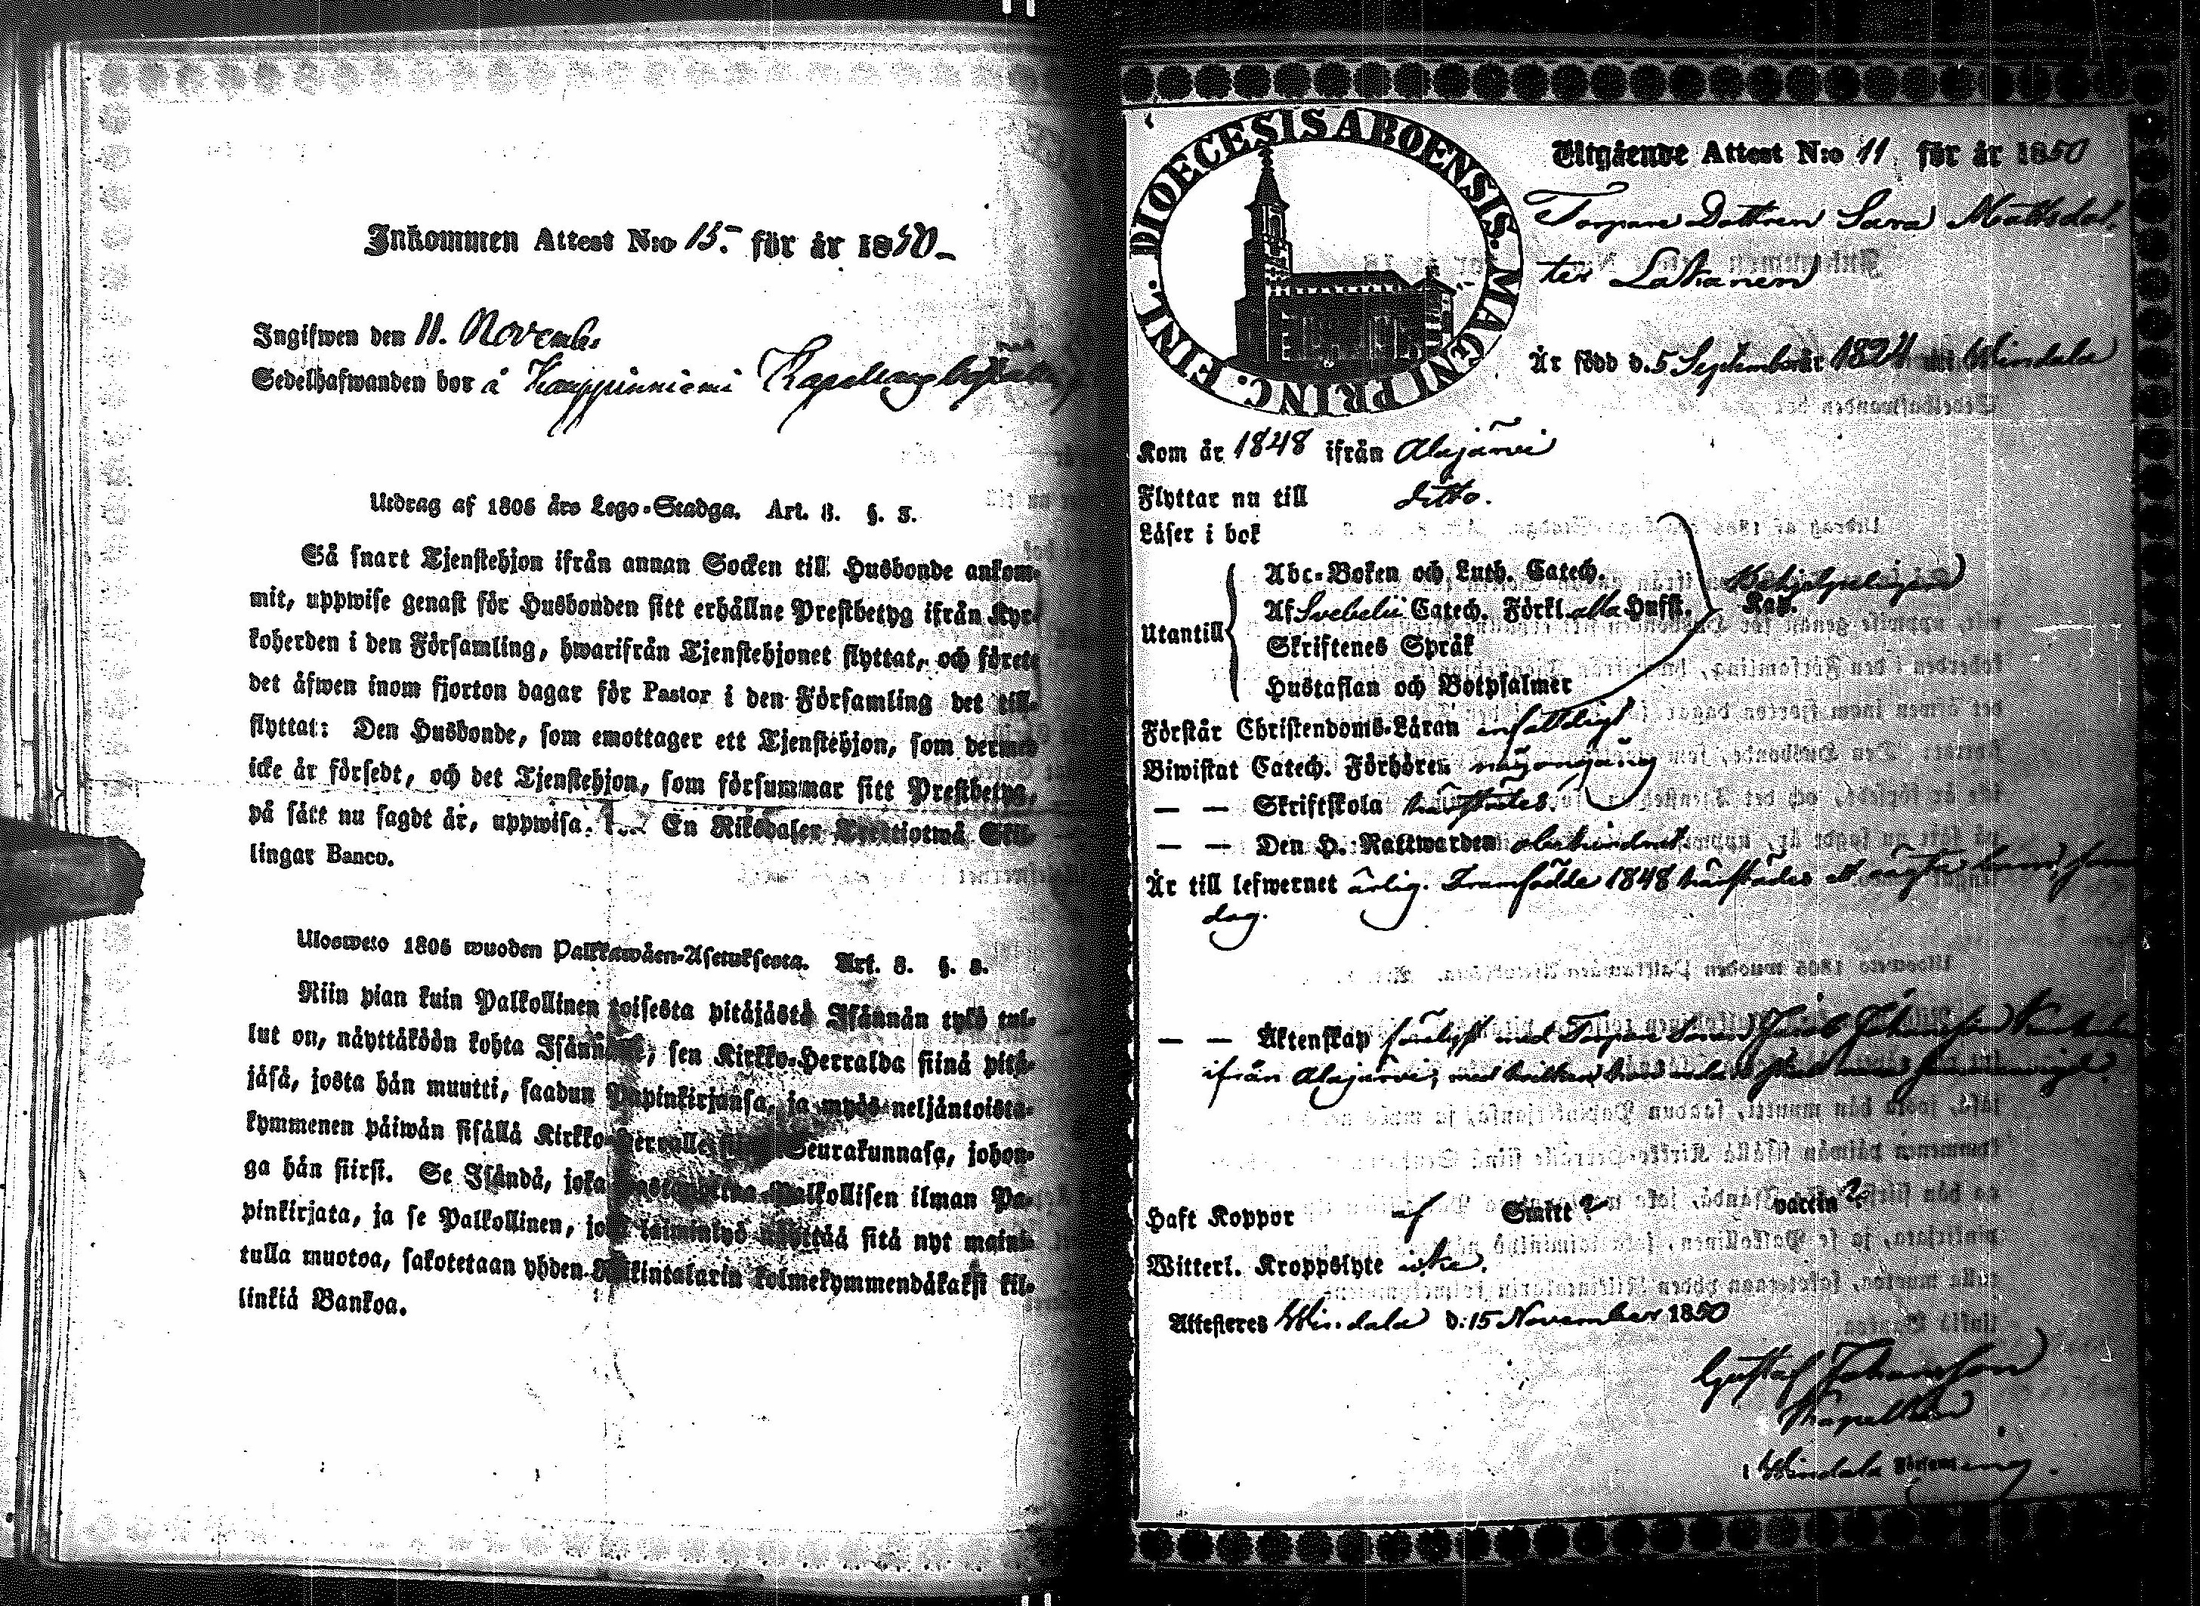 Inkommen Attest N:o 15. för år 1850
Ingifwen den 11. Novemb.
Sedelhafwanden bor å Kauppinniemi
Utdrag af 1805 års Lego-Stadga. Art. 8. §. 3.
Så snart Tjenstehjon ifrån annan Socken till Husbonde ankom-
mit, uppwise genast för Husbonden sitt erhållne Prestbetyg ifrån Kyr-
koherden i den Församling, hwarifrån Tjenstehjonet flyttat, och förete
det äfwen inom fjorton dagar för Pastor i den Församling det till-
flyttat: Den Husbonde, som emottager ett Tjenstehjon, som dermed
icke är försedt, och det Tjenstehjon, som försummar sitt Prestbetyg,
på sätt nu sagdt är, uppwisa. En Riksdaler Trettiotwå Skil-
lingar Banco.
Ulosweto 1805 wuoden Palkkawäen-Asetuksesta. Art. 8. §. 3.
Niin pian kuin Palkollinen toisesta pitäjästä Isännän tykö tul-
lut on, näyttäköön kohta Isännälle, sen Kirkko-Herralda siinä pitä-
jäsä, josta hän muutti, saadun Papinkirjansa, ja myös neljäntoista-
kymmenen päiwän sisällä Kirkko-Herralle siinä Seurakunnasa, johon-
ga hän siirsi. Se Isändä, joka Palkollisen ilman Pa-
pinkirjata, ja se Palkollinen, joka laiminlyö näyttää sitä nyt maini-
tulla muotoa, sakotetaan yhden Riikintalarin kolmekymmendäkaksi kil-
linkiä Bankoa.
DIOECESIS ABOENSIS. MAGNI PRINC. FINL.
Utgående Attest N:o 11. för år 1850
Torpare Dottren Sara Mattsdot-
ter Latianen
Är född d. 5 September år 1824 uti Windala
Kom år 1848 ifrån Alajärvi
Flyttar nu till ditto.
Läser i bok
Abc-Boken och Luth. Catech.
Utantill Af Svebelii Catech. Förkl. alla Hufst. Kap.
Skriftenes Språk
Hustaflan och Botpsalmer
Förstår Christendoms-Läran enfaldigt
Biwistat Catech. Förhören någongång
— — Skriftskola härstädes.
— — Den H. Nattwarden obehindrat
Är till lefwernet ärlig. Framfödde 1848 härstädes ett oägta barn,
dag.
— — Äktenskap med Torpare Sonen Jacob Johansson
ifrån Alajärvi, med
Haft Koppor af Smitt? vaccin?
Witterl. Kroppslyte icke.
Attesteres Windala d. 15 November 1850
Gustaf Johansson
Kapellan
i Windala Församling.